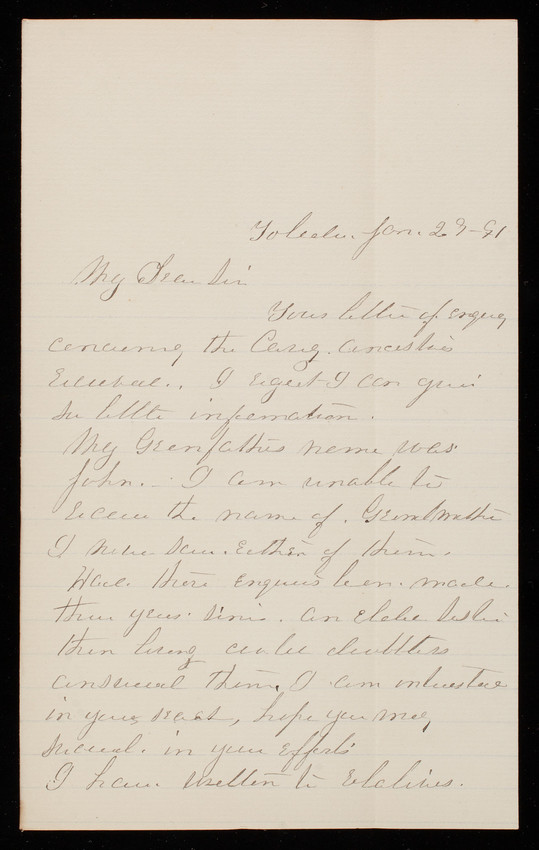 Toledo. Jan. 29-91
My Dear Sir
Your letter of enquiry
concerning the Casey ancestries
Received. I regret I can give
so little information.
My Granfathers name was
John. - I am unable to
Recall the name of Grandmother
I never saw Either of them.
Had these enquires been made
three years since. an elder sister
then living could doubtless
answered them. I am interested
in your search, hope you may
succeed in your efforts
I have written to Relatives.